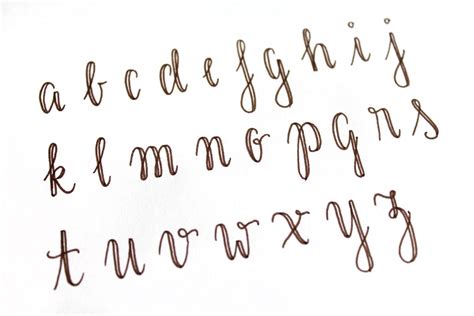 a b c d e f g h i j
k l m n o p q r s
t u v w x y z